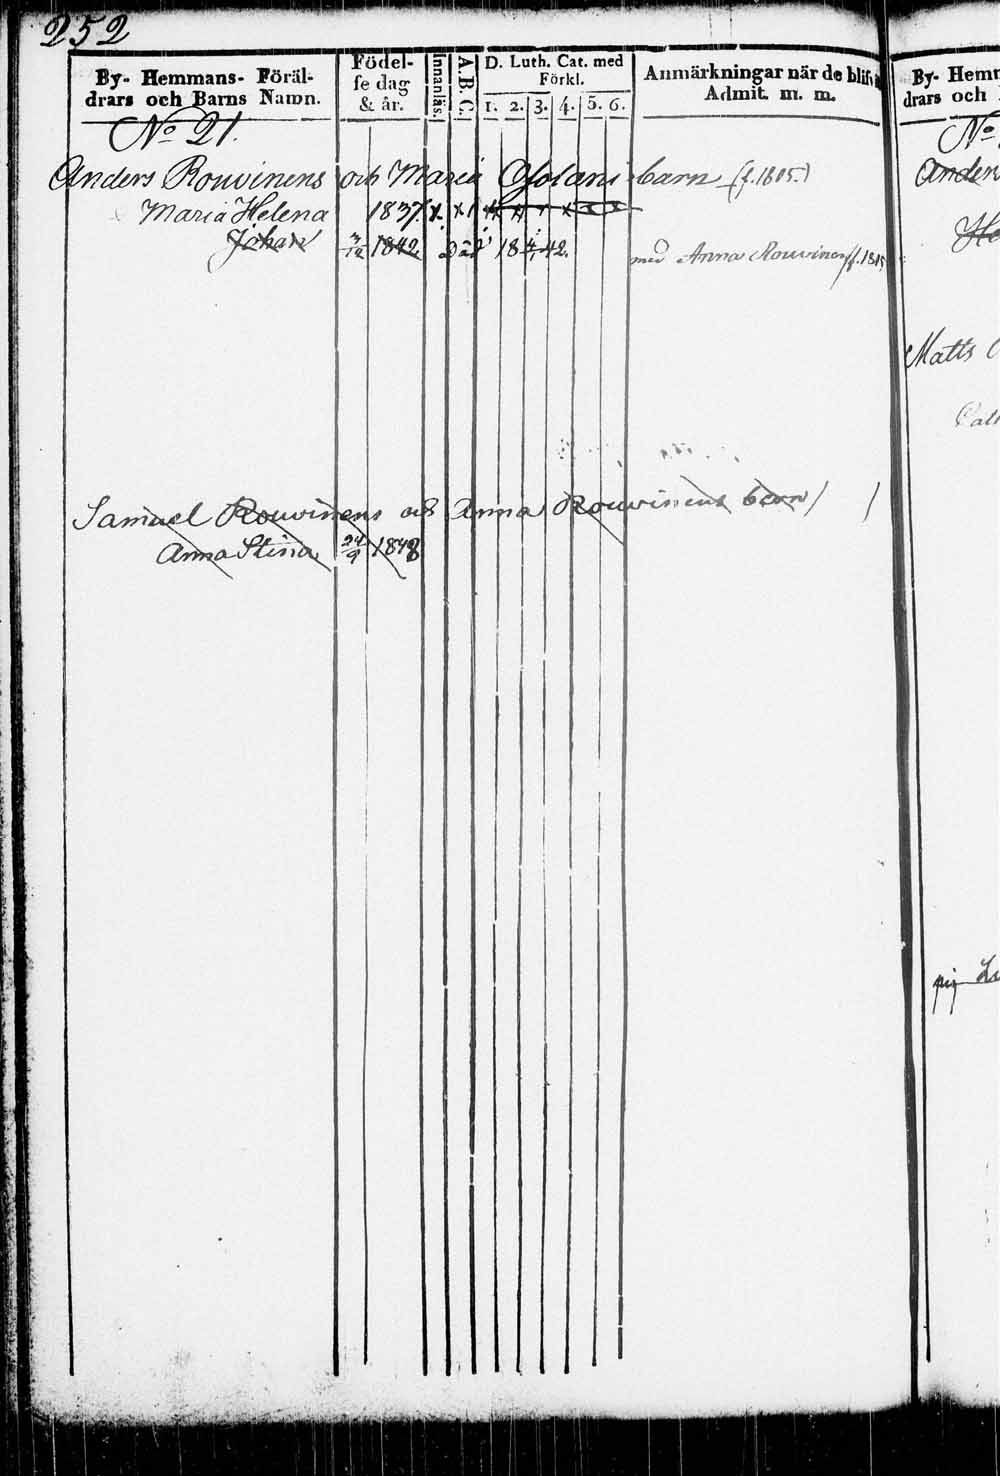 252
By- Hemmans- Föräl-
drars och Barns Namn.
Födel-
se dag
& år.
Innanläs.
A.B.C.
D. Luth. Cat. med
Förkl.
1. 2. 3. 4. 5. 6.
Anmärkningar när de blifv
Admit. m. m.
No 21.
Anders Rouvinens och Maria barn (f. 1805.)
Maria Helena 1837. x x
Johan 3/12 1842 Död 18 4/1 42. med Anna Rouvinen f. 1815
Samuel Rouvinens och Anna Rouvinens barn
Anna Stina 24/9 1848
By- Hem
drars och
No
Anders
Matts